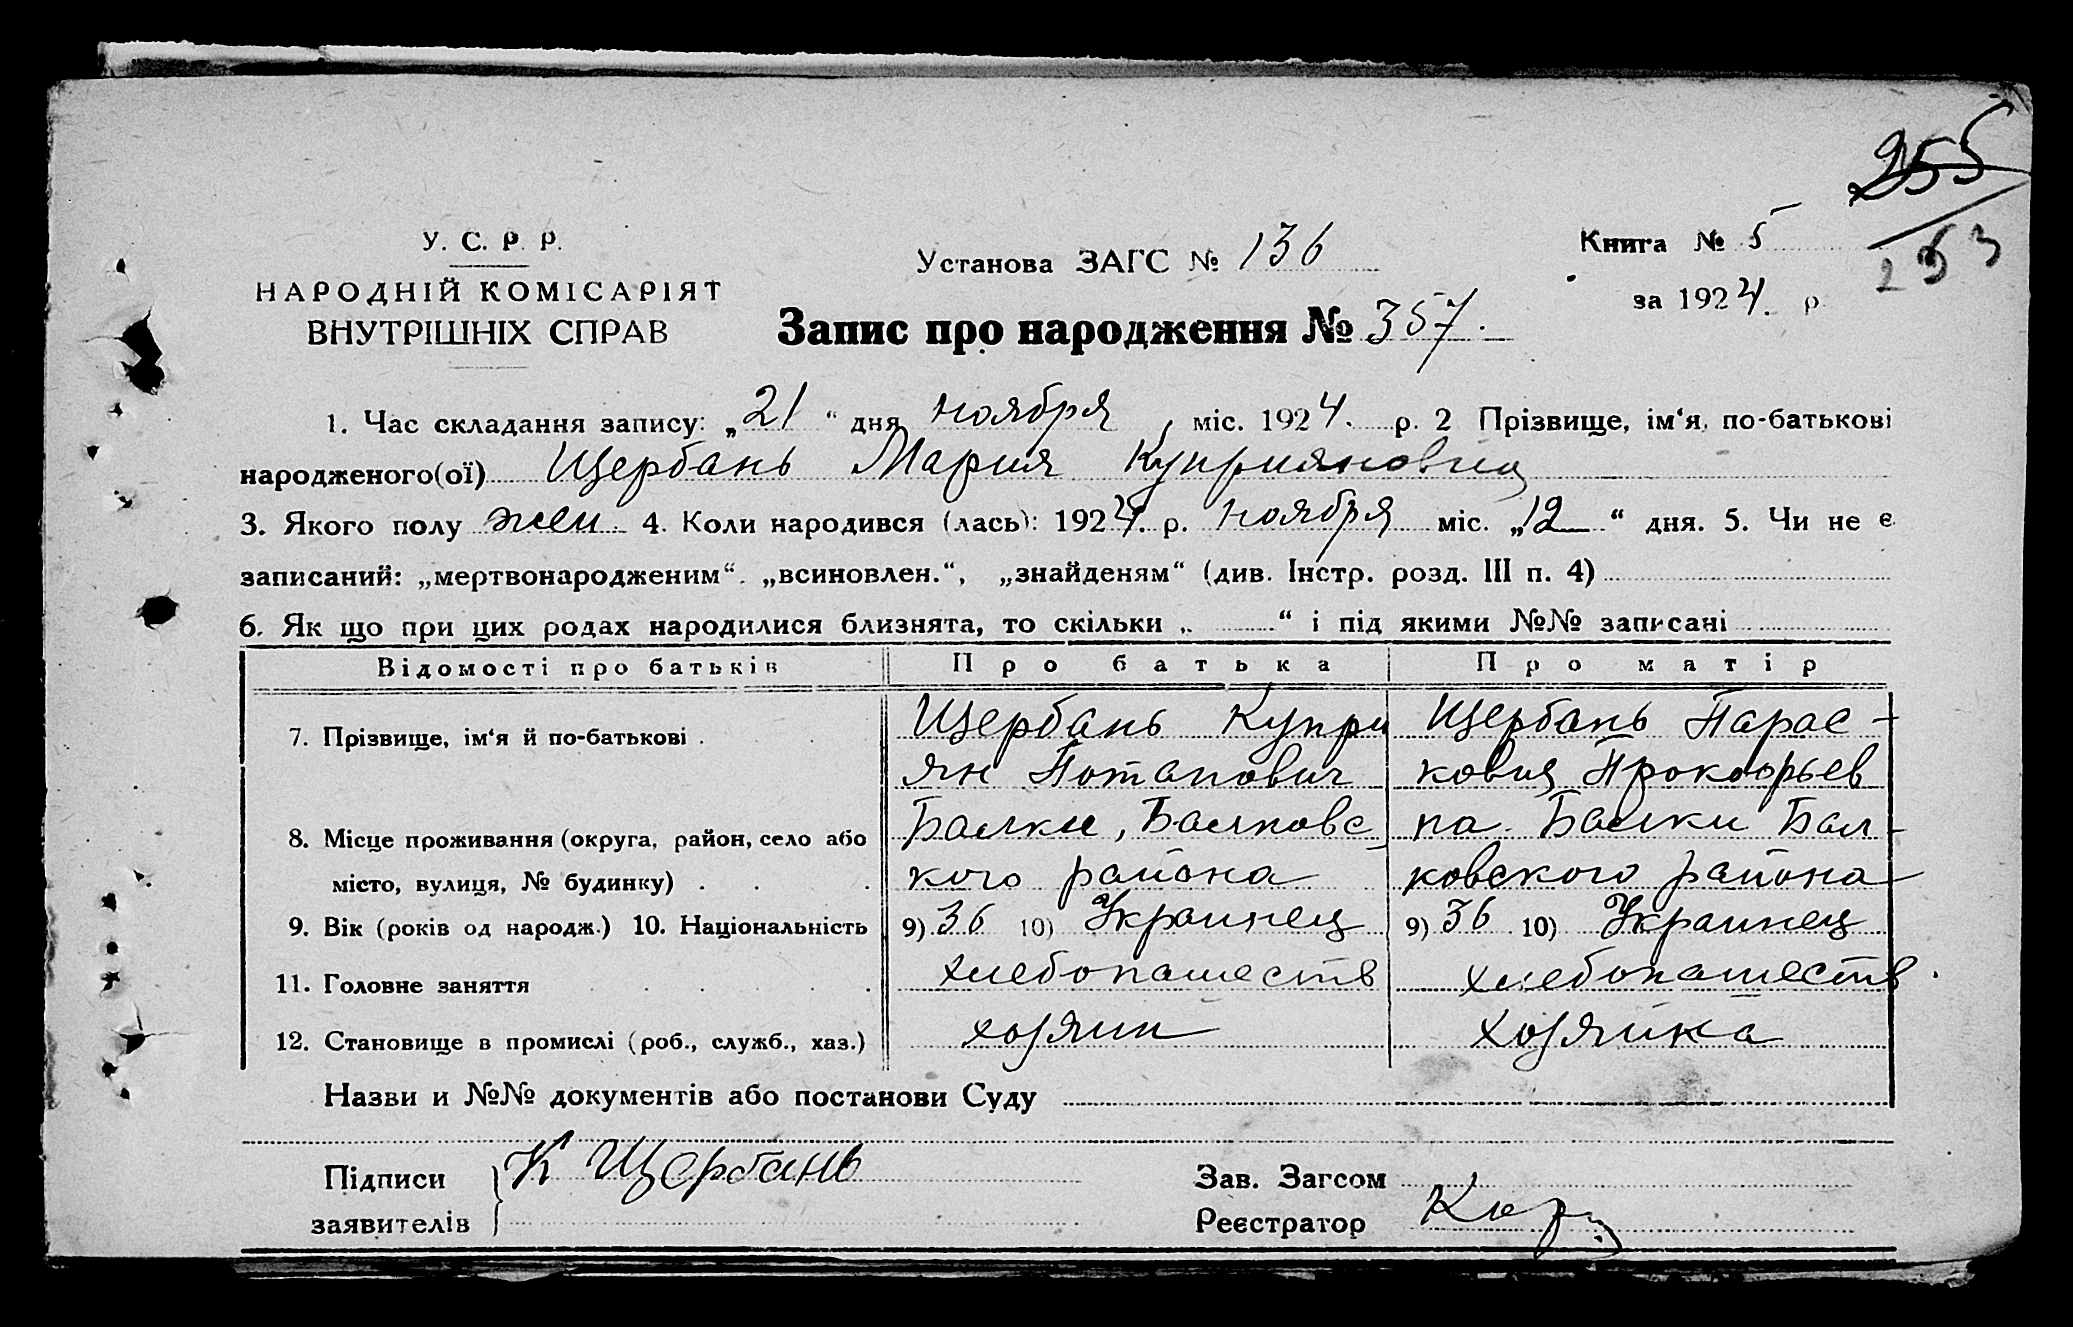 255
253
У. С. Р. Р.
НАРОДНІЙ КОМІСАРІЯТ
ВНУТРІШНІХ СПРАВ
Установа ЗАГС № 136
Книга № 5
за 1924 р.
Запис про народження № 357.
1. Час складання запису: „21“ дня ноября, міс. 1924. р. 2 Прізвище, ім‘я, по-батькові
народженого(ої) Щербань Мария Куприяновна
3. Якого полу жен. 4. Коли народився (лась): 1924. р. ноября міс. „12“ дня. 5. Чи не є
записаний: „мертвонародженим“. „всиновлен.“, „знайденям“ (див. Інстр. розд. III п. 4)
6. Як що при цих родах народилися близнята, то скільки „ “ і під якими №№ записані
Відомості про батьків Про батька Про матір
7. Прізвище, ім‘я й по-батькові . Щербань Купри Щербань Парас-
ян Потапович ковия Прокофьев
8. Місце проживання (округа, район, село або Балки, Балковс на. Балки Бал-
місто, вулиця, № будинку) . . . кого района ковского района
9. Вік (років од народж.) 10. Національність 9) 36 10) Украинец 9) 36 10) Украинец
11. Головне заняття хлебопашеств хлебопашеств.
12. Становище в промислі (роб., служб., хаз.) хозяин хозяйка
Назви и №№ документів або постанови Суду
Підписи К Щербань Зав. Загсом
заявителів Реєстратор